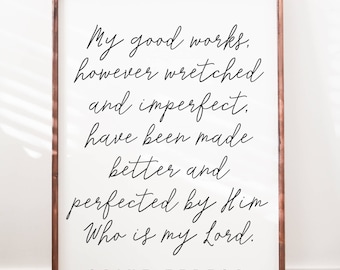 My good works,
however wretched
and imperfect,
have been made
better and
perfected by Him
Who is my Lord.